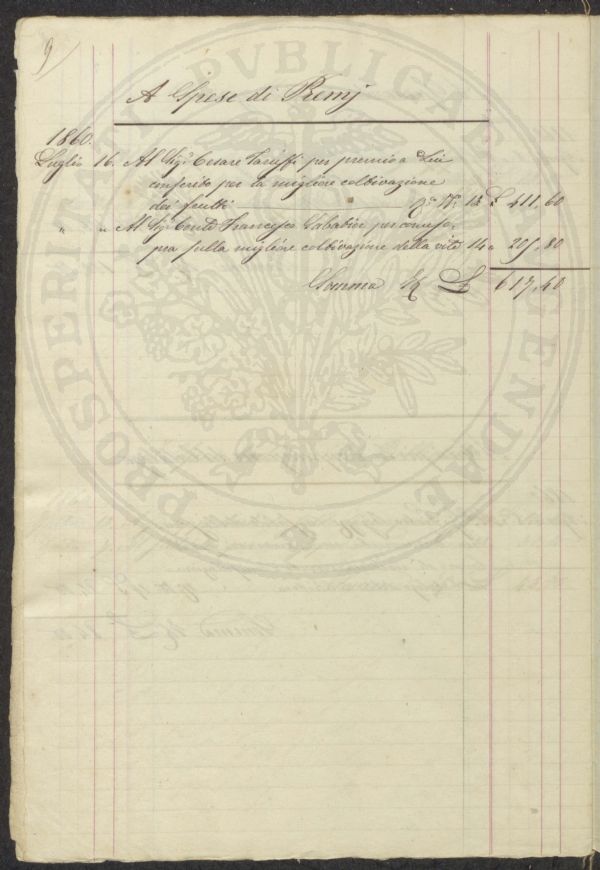 9
A Spese di Premj
1860.
Luglio 16. Al Sig.r Cesare Tariffi per premio a Lui
conferito per la migliore coltivazione
dei frutti g.e N.o 13 £ 411,60
" " Al Sig. Conte Francesco per
pra sulla migliore coltivazione della vite 14 " 205,80
Somma £ 617,40
PROSPERITATI PVBLICAE AVGENDAE